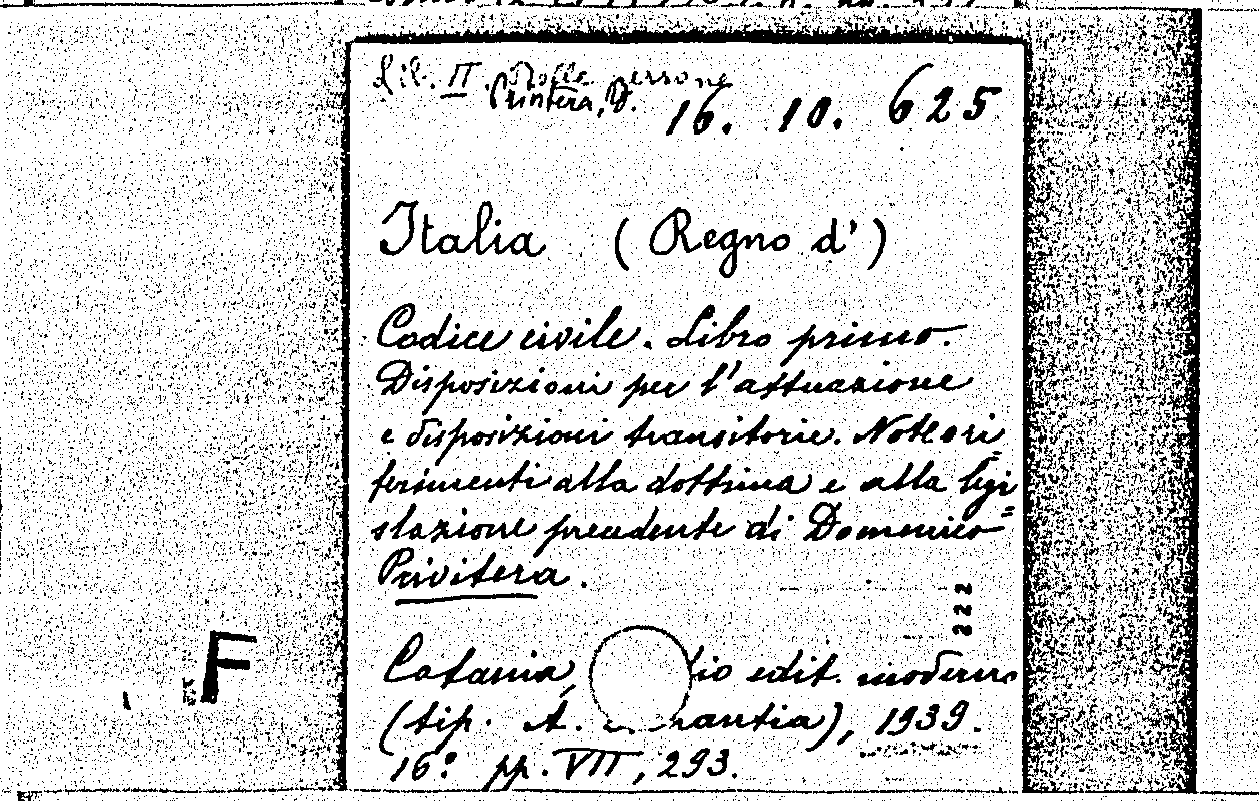 Lib. II. Delle Persone
Privitera, D.
16. 10. 625
Italia ( Regno d' )
Codice civile. Libro primo.
Disposizioni per l'attuazione
e disposizioni transitorie. Note o ri=
ferimenti alla dottrina e alla legi=
slazione precedente di Domenico
Privitera.
222
Catania, io edit. moderno
(tip. A. rantia), 1939.
16° pp. VII, 293.
F